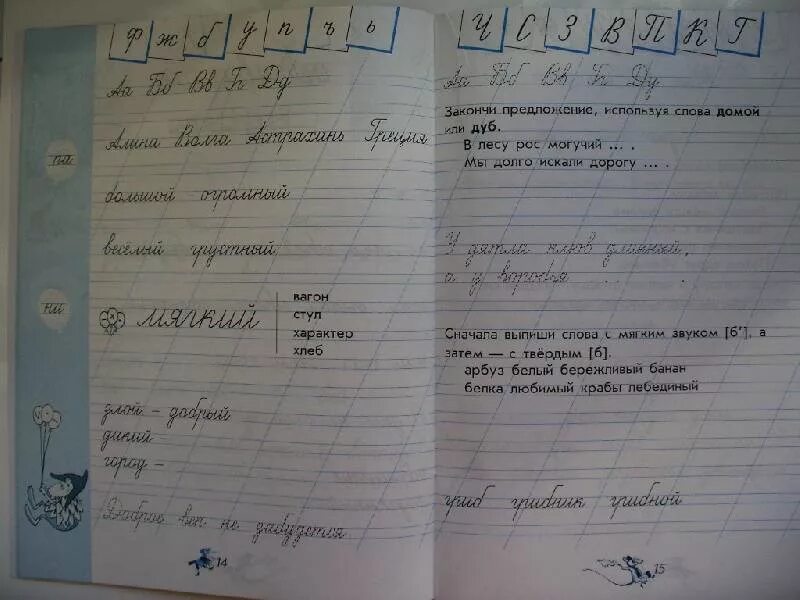 ф ж б у п ъ ь
Аа Бб Вв Гг Дд
Алина Волга Астрахань Греция
па
большой огромный
весёлый грустный
ни
мягкий
вагон
стул
характер
хлеб
злой – добрый
дикий
город –
Доброе век не забудется.
14
Ч С З В П К Г
Аа Бб Вв Гг Дд
Закончи предложение, используя слова домой
или дуб.
В лесу рос могучий ... .
Мы долго искали дорогу ... .
У дятла клюв длинный,
а у воробья ... .
Сначала выпиши слова с мягким звуком [б'], а
затем — с твёрдым [б].
арбуз белый бережливый банан
белка любимый крабы лебединый
гриб грибник грибной
15